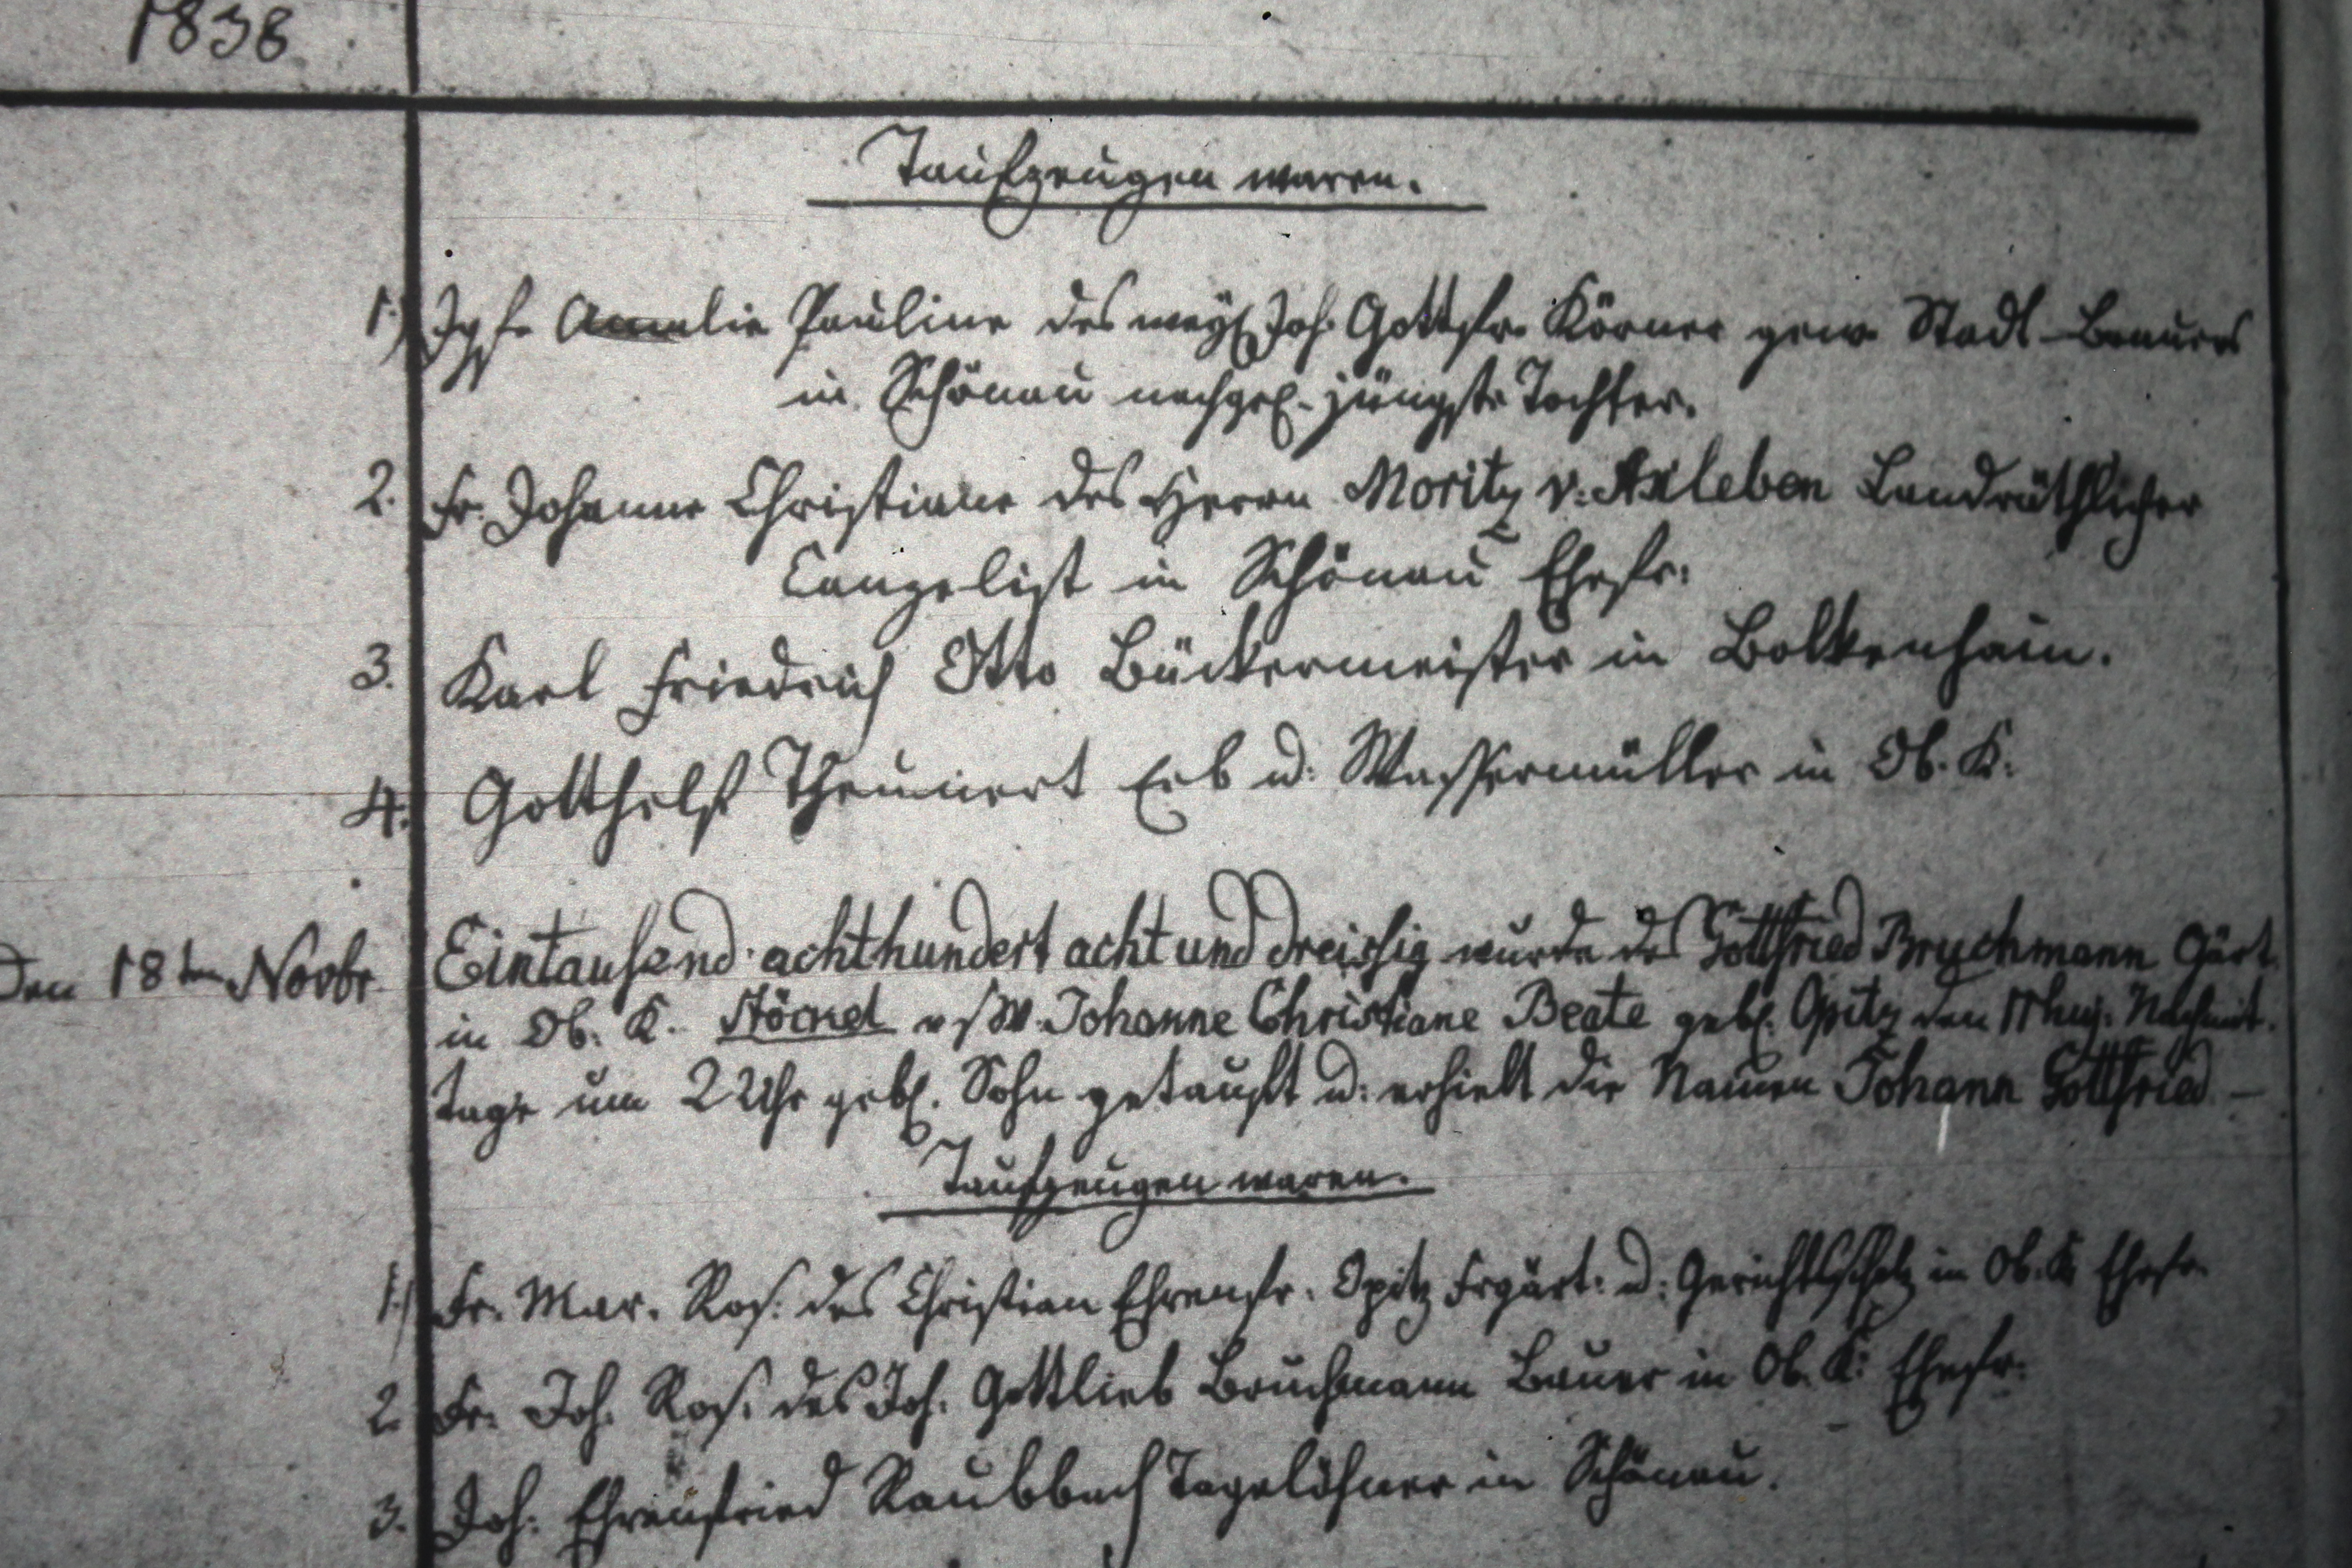 1838
Taufzeugen waren.
1.) Jgfr Amalie Pauline des weyl Joh. Gottfr. Körner gew. Stadt-Brauers
in Schönau nachgel. jüngste Tochter.
2. Fr. Johanne Christiane des Herrn Moritz v. Axleben Landräthlicher
Canzelist in Schönau Ehefr.
3. Karl Friedrich Otto Bäckermeister in Bolkenhain.
4. Gotthelf Theunert Erb u: Wassermüller in Ob. K.
Den 18ten Novbr. Eintausend achthundert acht und dreissig wurde des Gottfried Bruchmann Gärt.
in Ob. K. Stöckel Johanne Christiane Beate gebl. Opitz den 11 huj. Nachmit.
tags um 2 Uhr gebl. Sohn getauft u: erhielt die Namen Johann Gottfried –
Taufzeugen waren.
1.) Fr. Mar. Ros. des Christian Ehrenfr. Opitz Frgärt. u: Gerichtsscholz in Ob. K. Ehefr.
2. Fr. Joh. Ros. des Joh. Gottlieb Bruchmann Bauer in Ob. K. Ehefr.
3. Joh. Ehrenfried Raubbach Tagelöhner in Schönau.